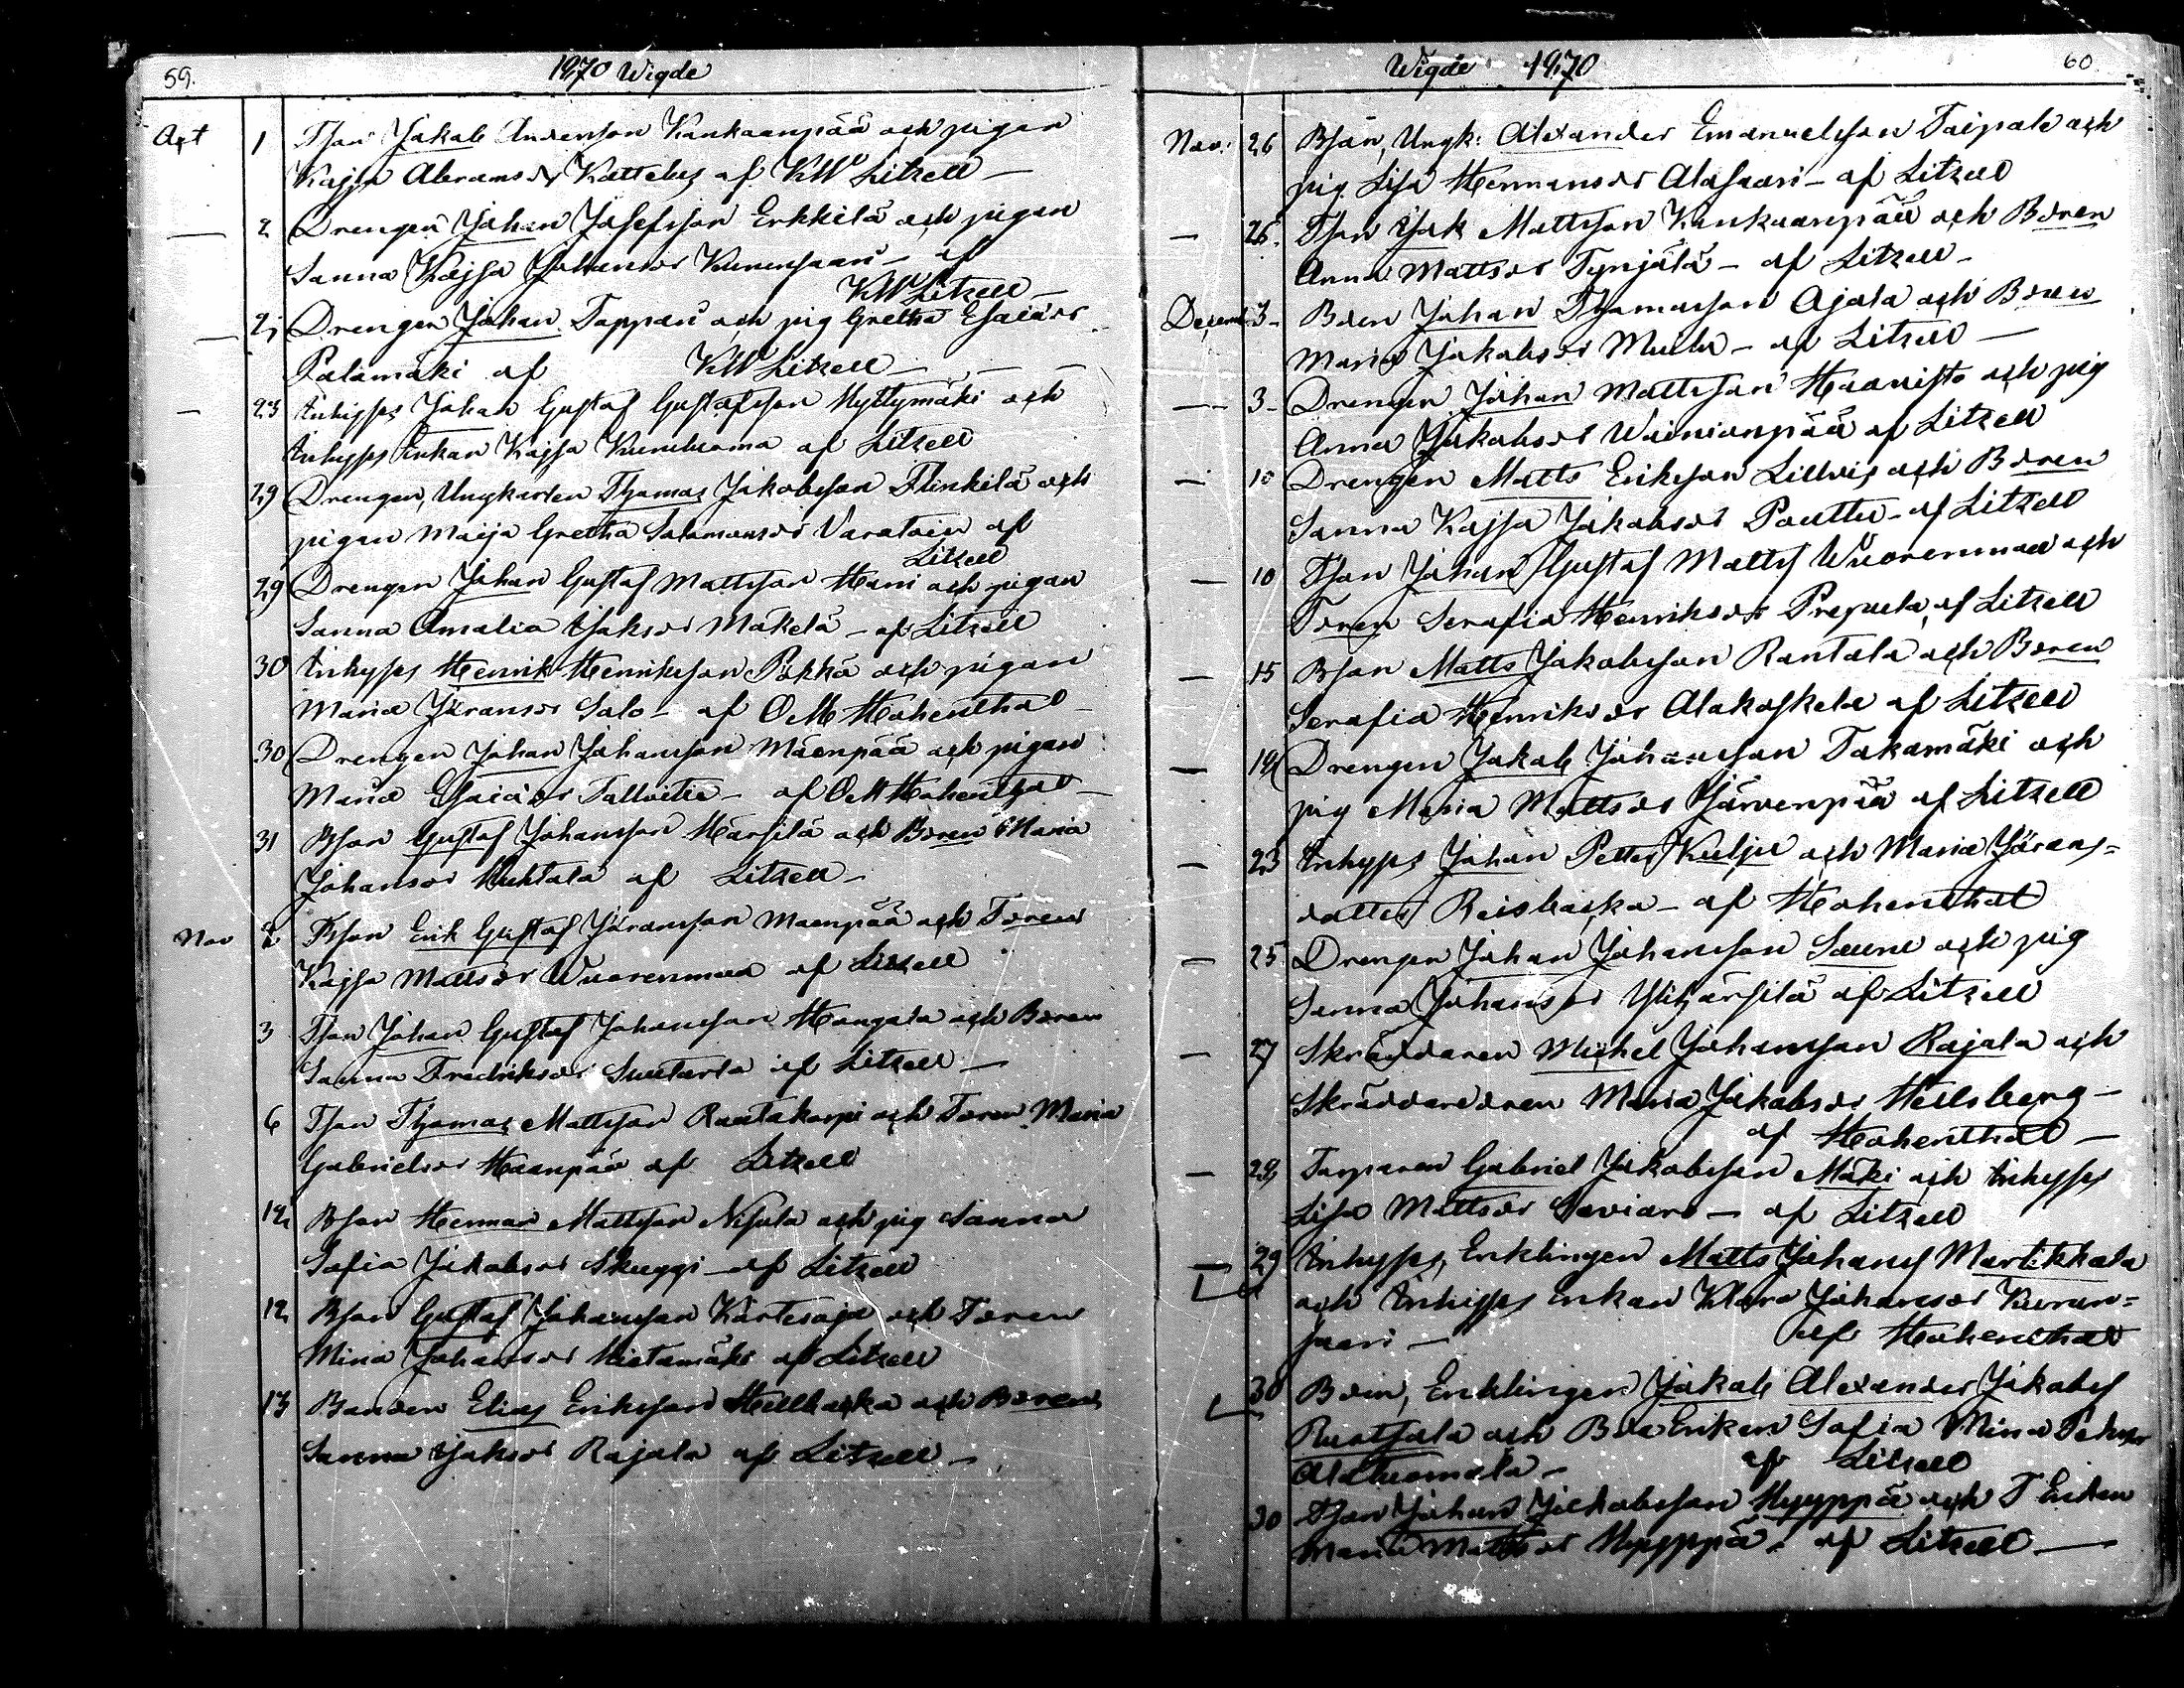 59. 1870 Wigde
Oct 1 Tson Jakob Andersson Kankaanpää och pigan
Kajsa Abramsdr Kattelus af KW Litzell —
— 2 Drengen Johan Josefsson Erkkilä och pigan
Sanna Kajsa Johansdr Kuivensaari — af
KW Litzell —
— Drengen Johan Tappari och pig Gretha Esaiædr
Palamäki af KW Litzell — — —
— 23 Inhyses Johan Gustaf Gustafsson Myllymäki och
Inhyses Enkan Kajsa af Litzell
29 Drengen, Ungkarlen Thomas Jakobsson Flinkilä och
pigan Maija Gretha Salomonsdr af
Litzell
29 Drengen Johan Gustaf Mattsson Harri och pigan
Sanna Amalia Isaksdr Mäkelä — af Litzell
30 Inhyses Henrik Henriksson Pökkä och pigan
Maria Jöransdr Salo — af OM Hohenthal
30 Drengen Johan Johansson Mäenpää och pigan
Maria Esaiædr Tallvitie — af OM Hohenthal —
31 Bson Gustaf Johansson Härsilä och Bdren Maria
Johansdr Huhtala af Litzell —
Nov 2 Tson Erik Gustaf Jöransson Mäenpää och Tdren
Kajsa Mattsdr Wuorenmaa af Litzell
3 Tson Johan Gustaf Johansson Hangala och Bdren
Sanna Fredriksdr af Litzell —
6 Tson Thomas Mattsson Rautakorpi och Tdren Maria
Gabrielsdr Haanpää af Litzell
12 Bson Herman Mattsson Nisula och pig Sanna
Sofia Jakobsdr Skuggi — af Litzell
12 Bson Gustaf Johansson Kärtesoja och Tdren
Mina Johansdr Hietamäki af Litzell
13 Bonden Elias Eriksson Hallbacka och Bdren
Sanna Isaksdr Rajala af Litzell —
Wigde 1870 60
Nov. 26 Bson, Ungk: Alexander Emanuelsson Taipale och
pig. Lisa Hermansdr Alasaari — af Litzell
— 26. Tson Isak Mattsson Kankaanpää och Bdren
Anna Mattsdr Tynjälä — af Litzell —
Decemb 3 — Bden Johan Thomasson Ajola och Bdren
Maria Jakobsdr — af Litzell —
— 3 — Drengen Johan Mattsson Haavisto och pig
Anna Jakobsdr Wainionpää af Litzell
— 10 Drengen Matts Eriksson Lillvis och Bdren
Sanna Kajsa Jakobsdr Pouttu — af Litzell
— 10 Tson Johan Gustaf Matts Wuorenmaa och
Tdren Serafia Henriksdr Prepula, af Litzell
— 15 Bson Matts Jakobsson Rantala och Bdren
Serafia Henriksdr Alakoskela af Litzell
— 19 Drengen Jakob Johansson Takamäki och
pig Maria Mattsdr Järvenpää af Litzell
— 23 Inhyses Johan Petter Kulju och Maria Jörans=
dotter Reisbacka — af Hohenthal
— 25 Drengen Johan Johansson Sauna och pig
Sanna Johansdr Ylihärsilä af Litzell
— 27 Skräddaren Michel Johansson Rajala och
Skräddaredren Maria Jakobsdr Heilsberg —
af Hohenthal —
— 28 Torparen Gabriel Jakobsson Mäki och Inhyses
Lisa Mattsdr Saviaro — af Litzell
— 29 Inhyses, Enklingen Matts Johans Martikkala
och Inhyses Enkan Klara Johansdr Kuivan=
saari — af Hohenthal
30 Bden, Enklingen Jakob Alexander Jakobs
Ruotsala och Bde Enkan Sofia Mina
Alatuomela — af Litzell
30 Tson Johan Jakobsson Hyyppä och T Enkan
Maria Mattsdr Hyyppä. af Litzell —